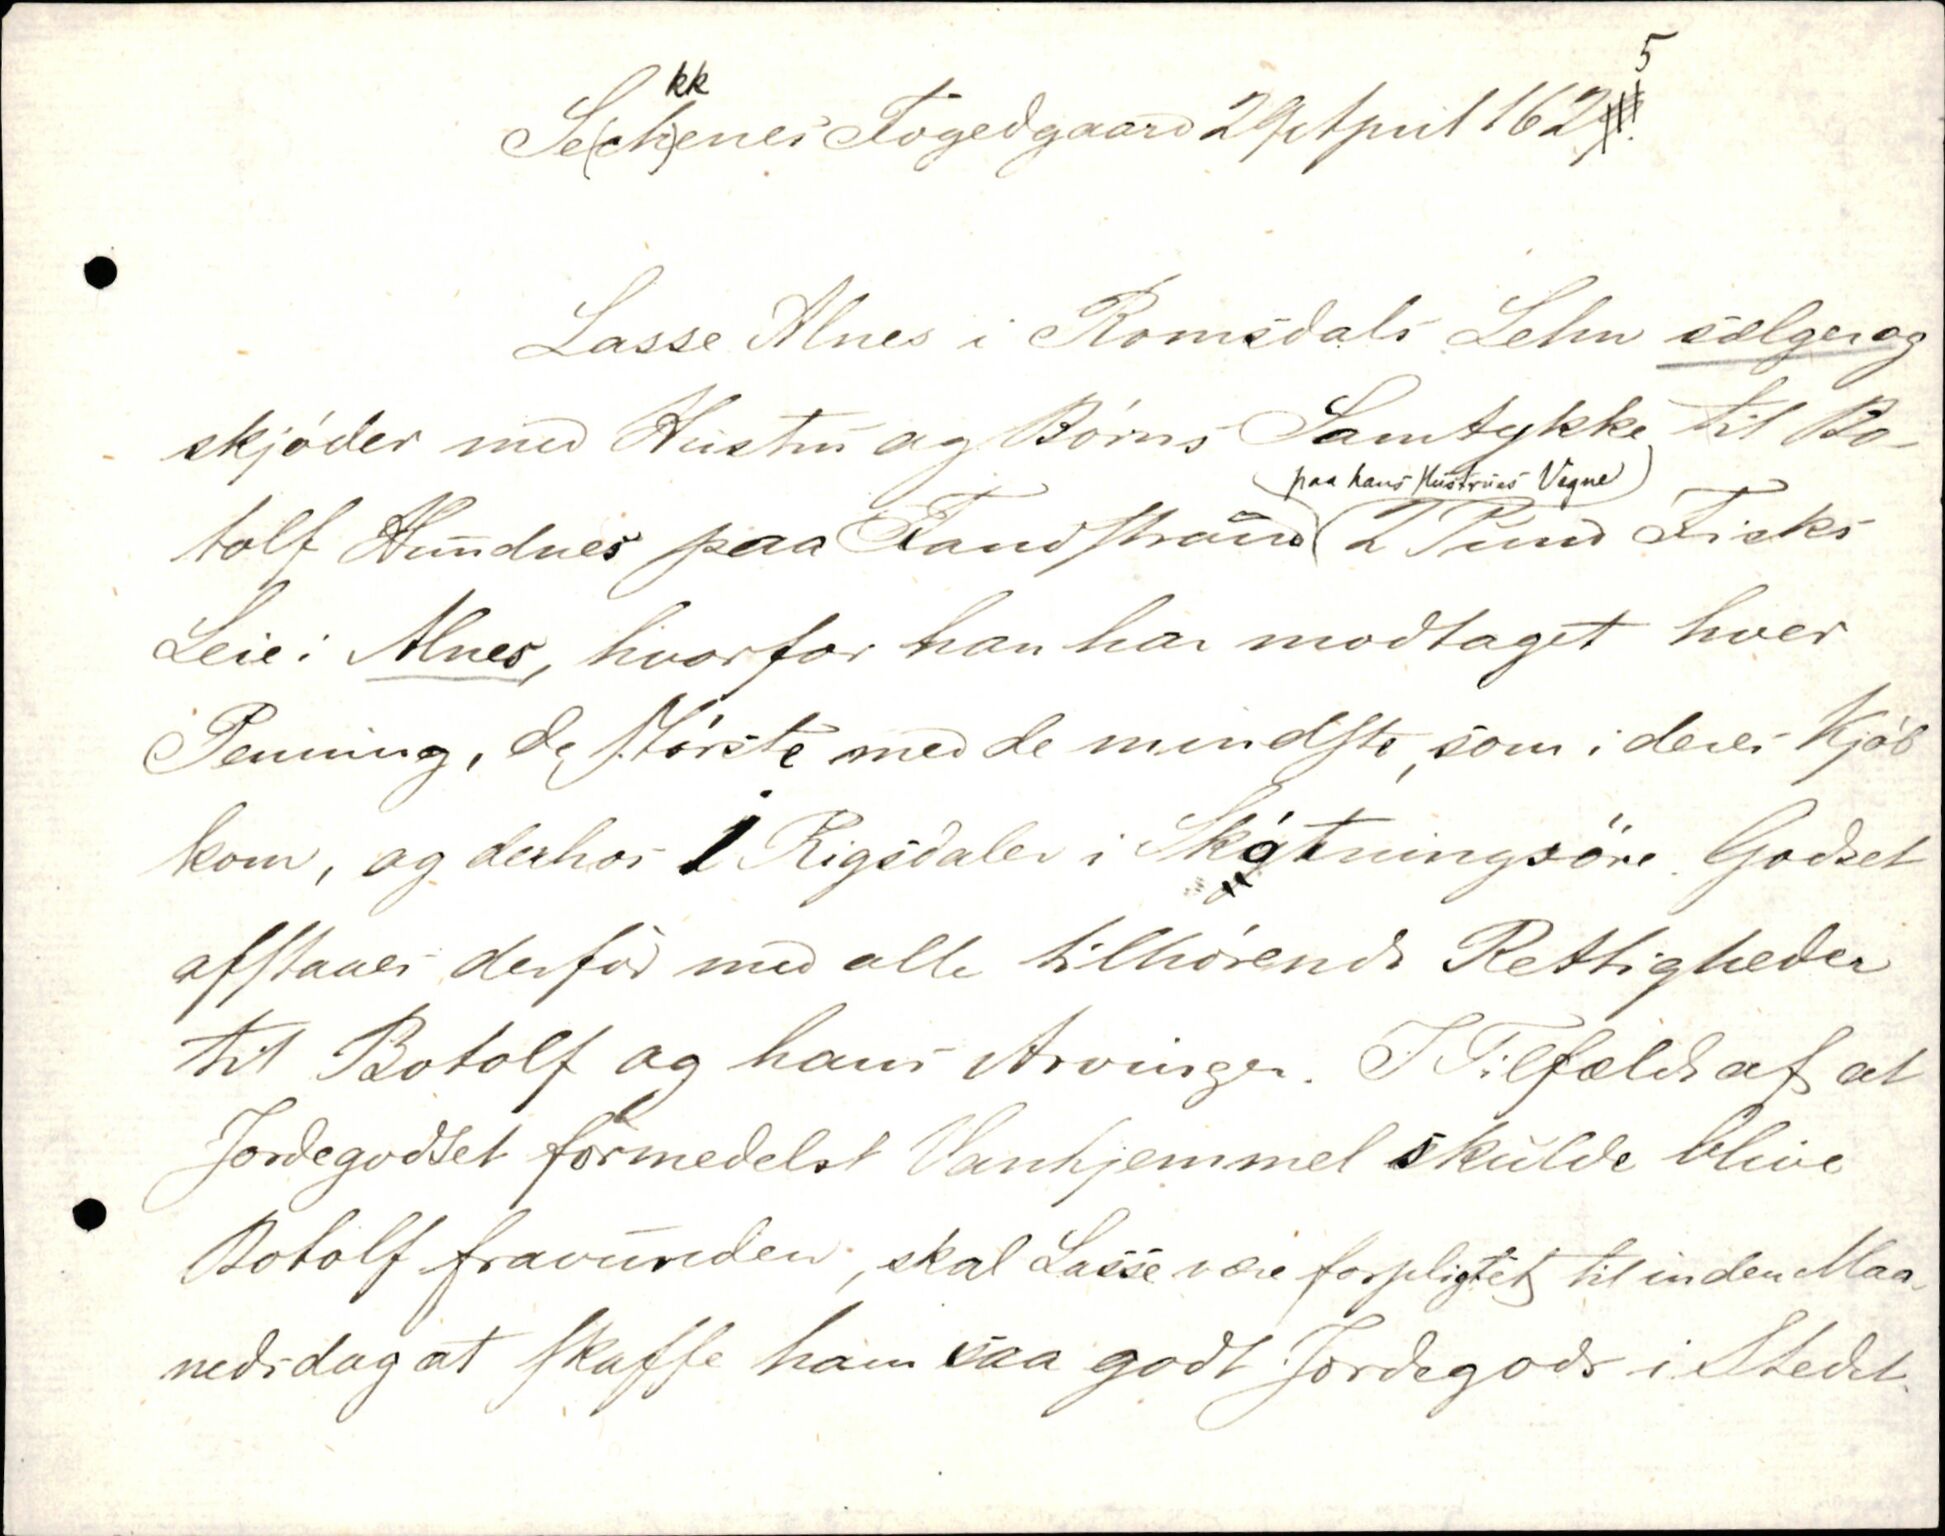 kk 5
Se(ch)enes Fogedgaard 29 April 162
Lasse Alnes i Romsdals Lehn sælger og
skjöder med Hustru og Börns Samtykke til Bo-
paa hans Hustrues Vegne
tolf Hundnes paa Tandstrand 2 Pund Fisks
Leie i Alnes, hvorfor han har modtaget hver
Penning, de störste med de mindste, som i deres Kjöb
kom, og derhos 1 Rigsdaler i Skötningsöre. Godset
afstaaes derfor med alle tilhörende Rettigheder
til Botolf og hans Arvinger. I Tilfælde af at
Jordegodset formedelst Vanhjemmel skulde blive
Botolf fravunden, skal Lasse være forpligtet til inden Maa-
nedsdag at skaffe ham saa godt Jordegods i Stedet.